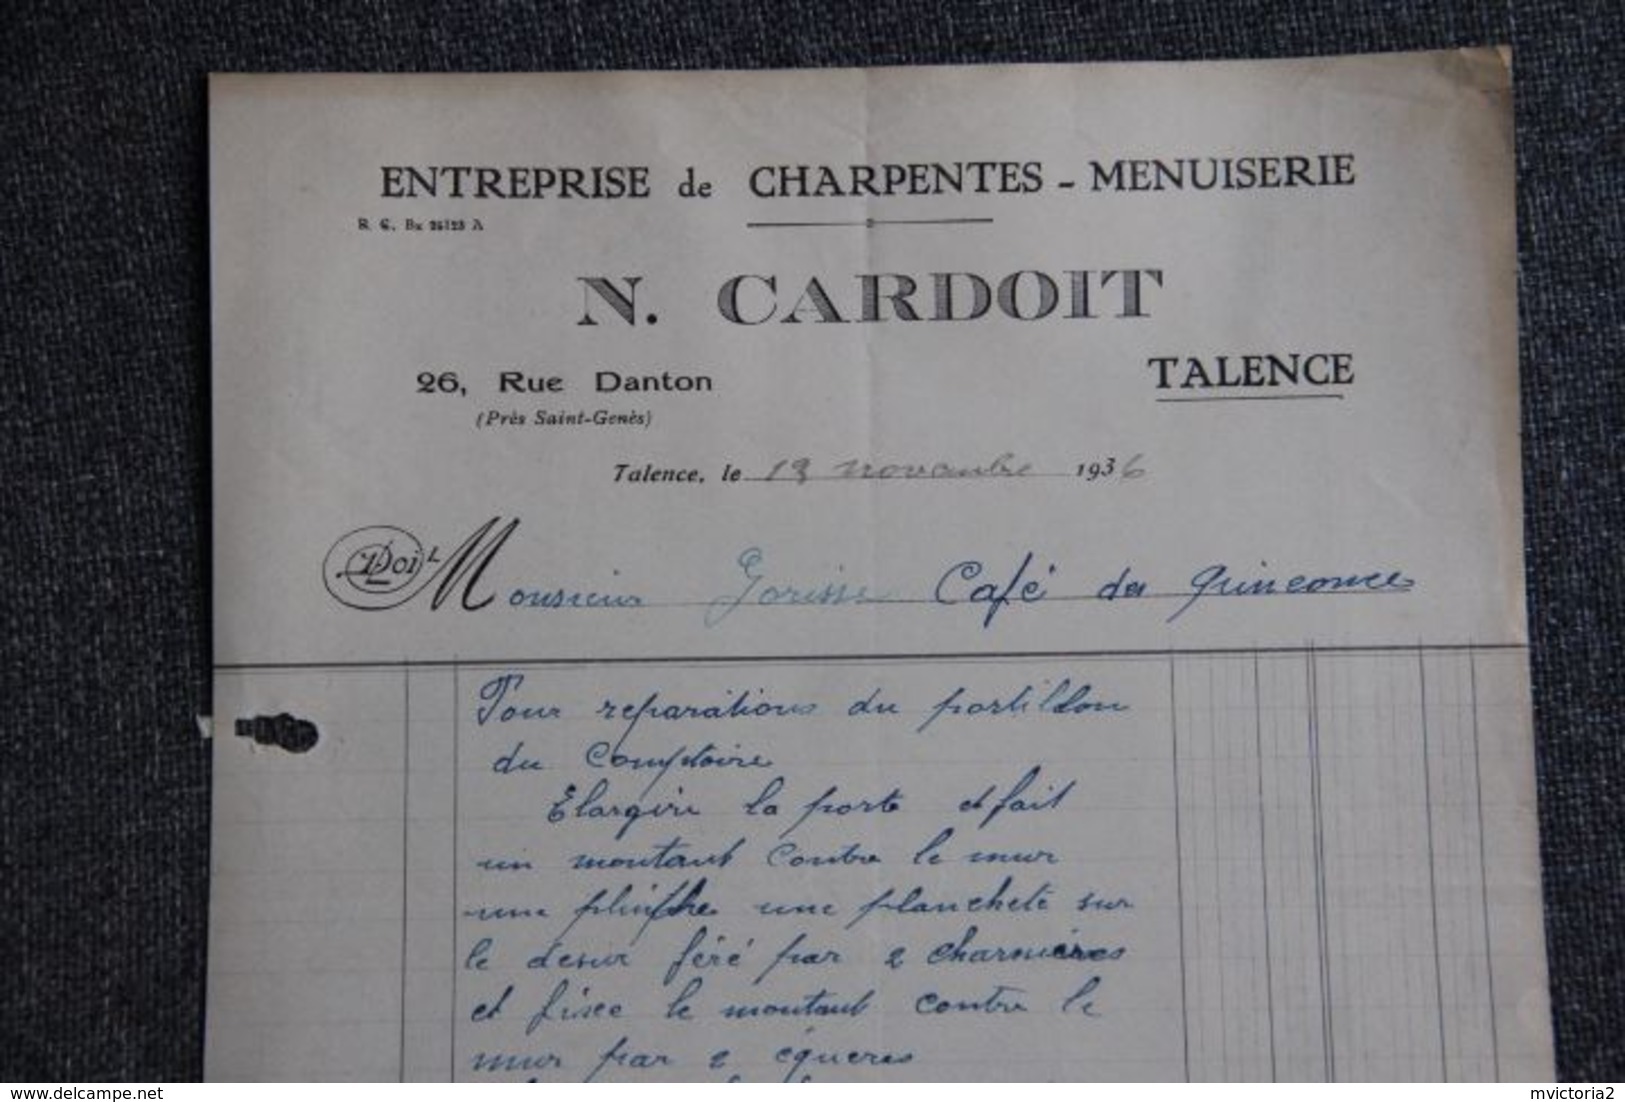 ENTREPRISE de CHARPENTES - MENUISERIE
R. C. Bx 26123 A
N. CARDOIT
26, Rue Danton
TALENCE
(Près Saint-Genès)
Talence, le 13 novembre 1936
Doit Monsieur Gorisse Café des Quinconces
Pour reparations du portillon
du Comptoire
Elargire la porte et fait
un montant contre le mur
une plinthe une planchete sur
le desur féré par 2 charnières
et fisee le montant contre le
mur par 2 équeres
delcampe.net
mvictoria2